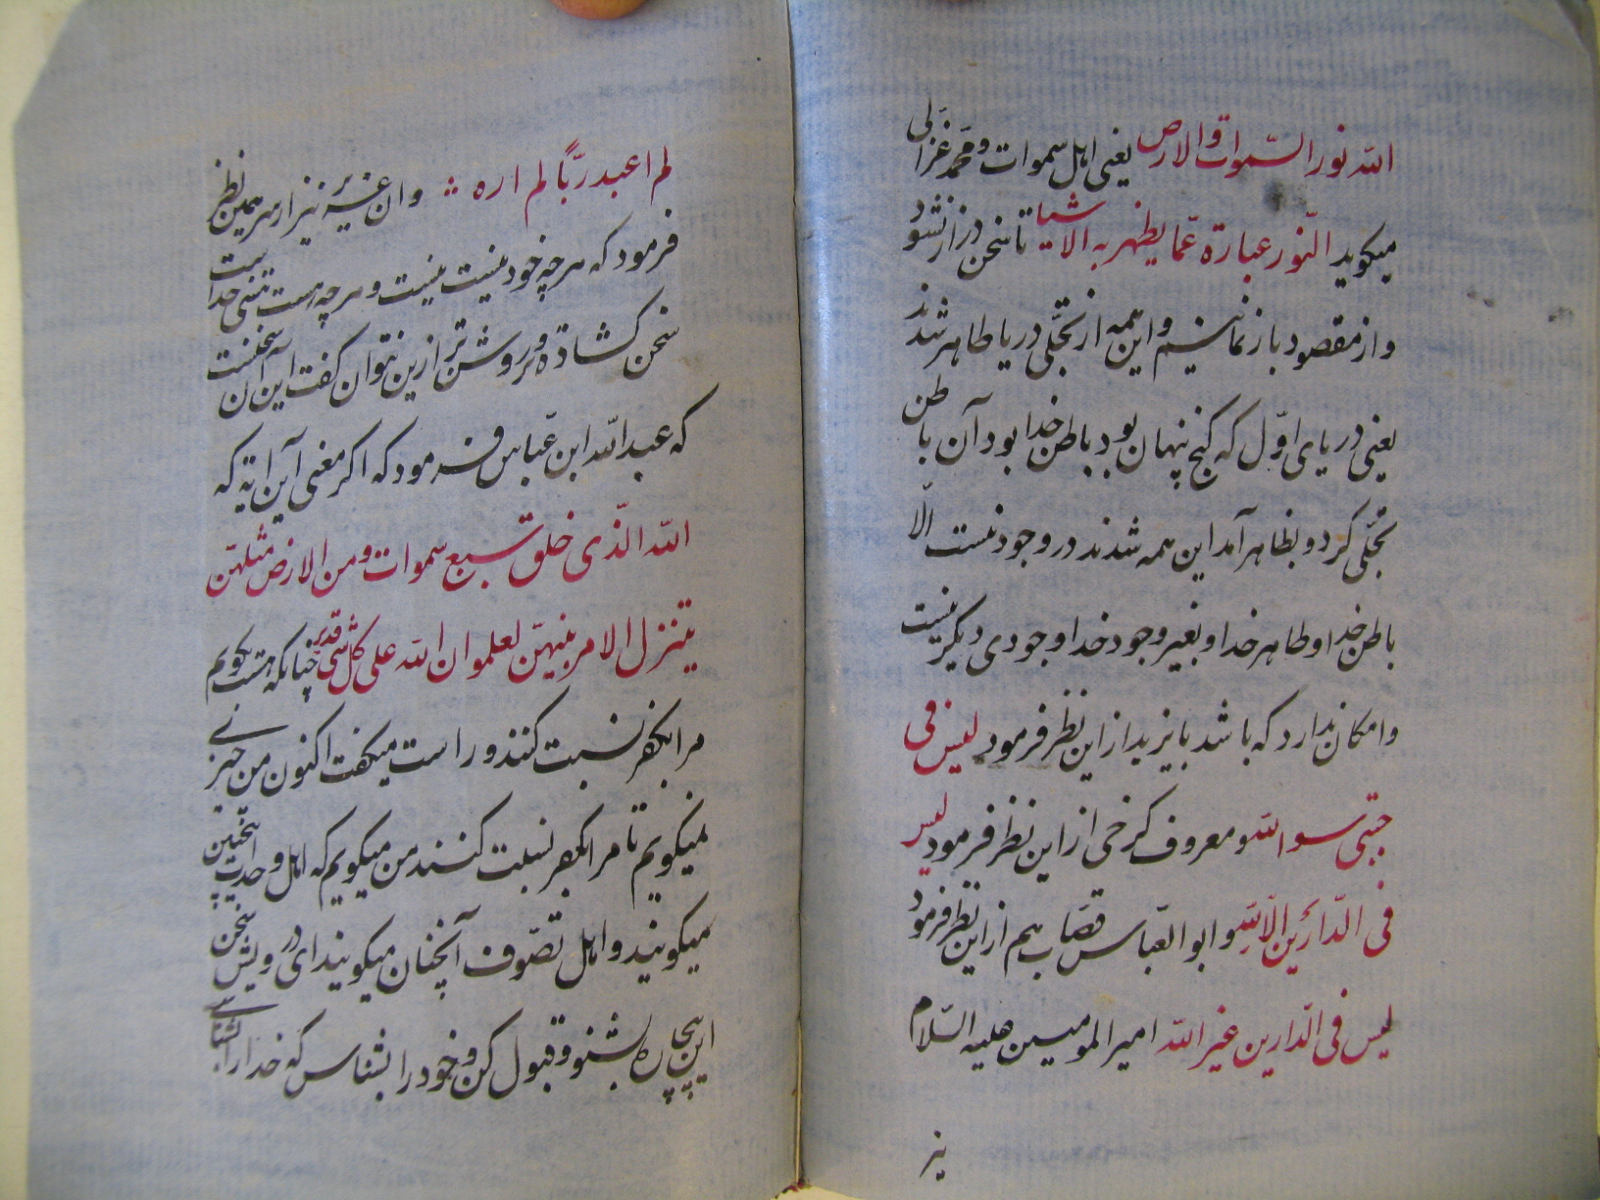 الله نور السّموات والارض یعنی اهل سموات و محمد غزالی
میکوید النّور عبارة عمّا یظهر به الاشیا تا سخن دراز نشود
و از مقصود باز نمانیم و این همه از تجلّی دریا ظاهر شدند
یعنی دریای اوّل که کنج پنهان بود باطن خدا بود آن باطن
تجلّی کرد و بظاهر آمد این همه شدند در وجود نیست الّا
باطن خدا و ظاهر خدا و بغیر وجود خدا وجودی دیکر نیست
و امکان ندارد که باشد بایزید از این نظر فرمود لیس فی
جبتی سوا الله و معروف کرخی از این نظر فرمود لیس
فی الدّارین الّا الله و ابو العبّاس قصّاب هم از این نظر فرمود
لیس فی الدّارین غیر الله امیر المومنین علیه السّلام
نیز
لم اعبد ربّاً لم اره و ان عزیز نیز از سر همین نظر
فرمود که هر چه خود نیست نیست و هر چه هست هستی خداست
سخن کشاده و روشن تر ازین نتوان کفت این آن سخنست
که عبد الله ابن عبّاس فرمود که اکر معنی این آیه که
الله الّذی خلق سبع سموات و من الارض مثلهنّ
یتنزل الامر بینهنّ لعلموا ان الله علی کل شی قدیر چنانکه هست بکویم
مرا بکفر نسبت کنند و راست میکفت اکنون من چیزی
نمیکویم تا مرا بکفر نسبت کنند من میکویم که اهل وحدت اینچنین
میکویند و اهل تصّوف آنچنان میکویند ای درویش سخن
این بیچاره بشنو و قبول کن و خود را بشناس که خدا را بشناسی